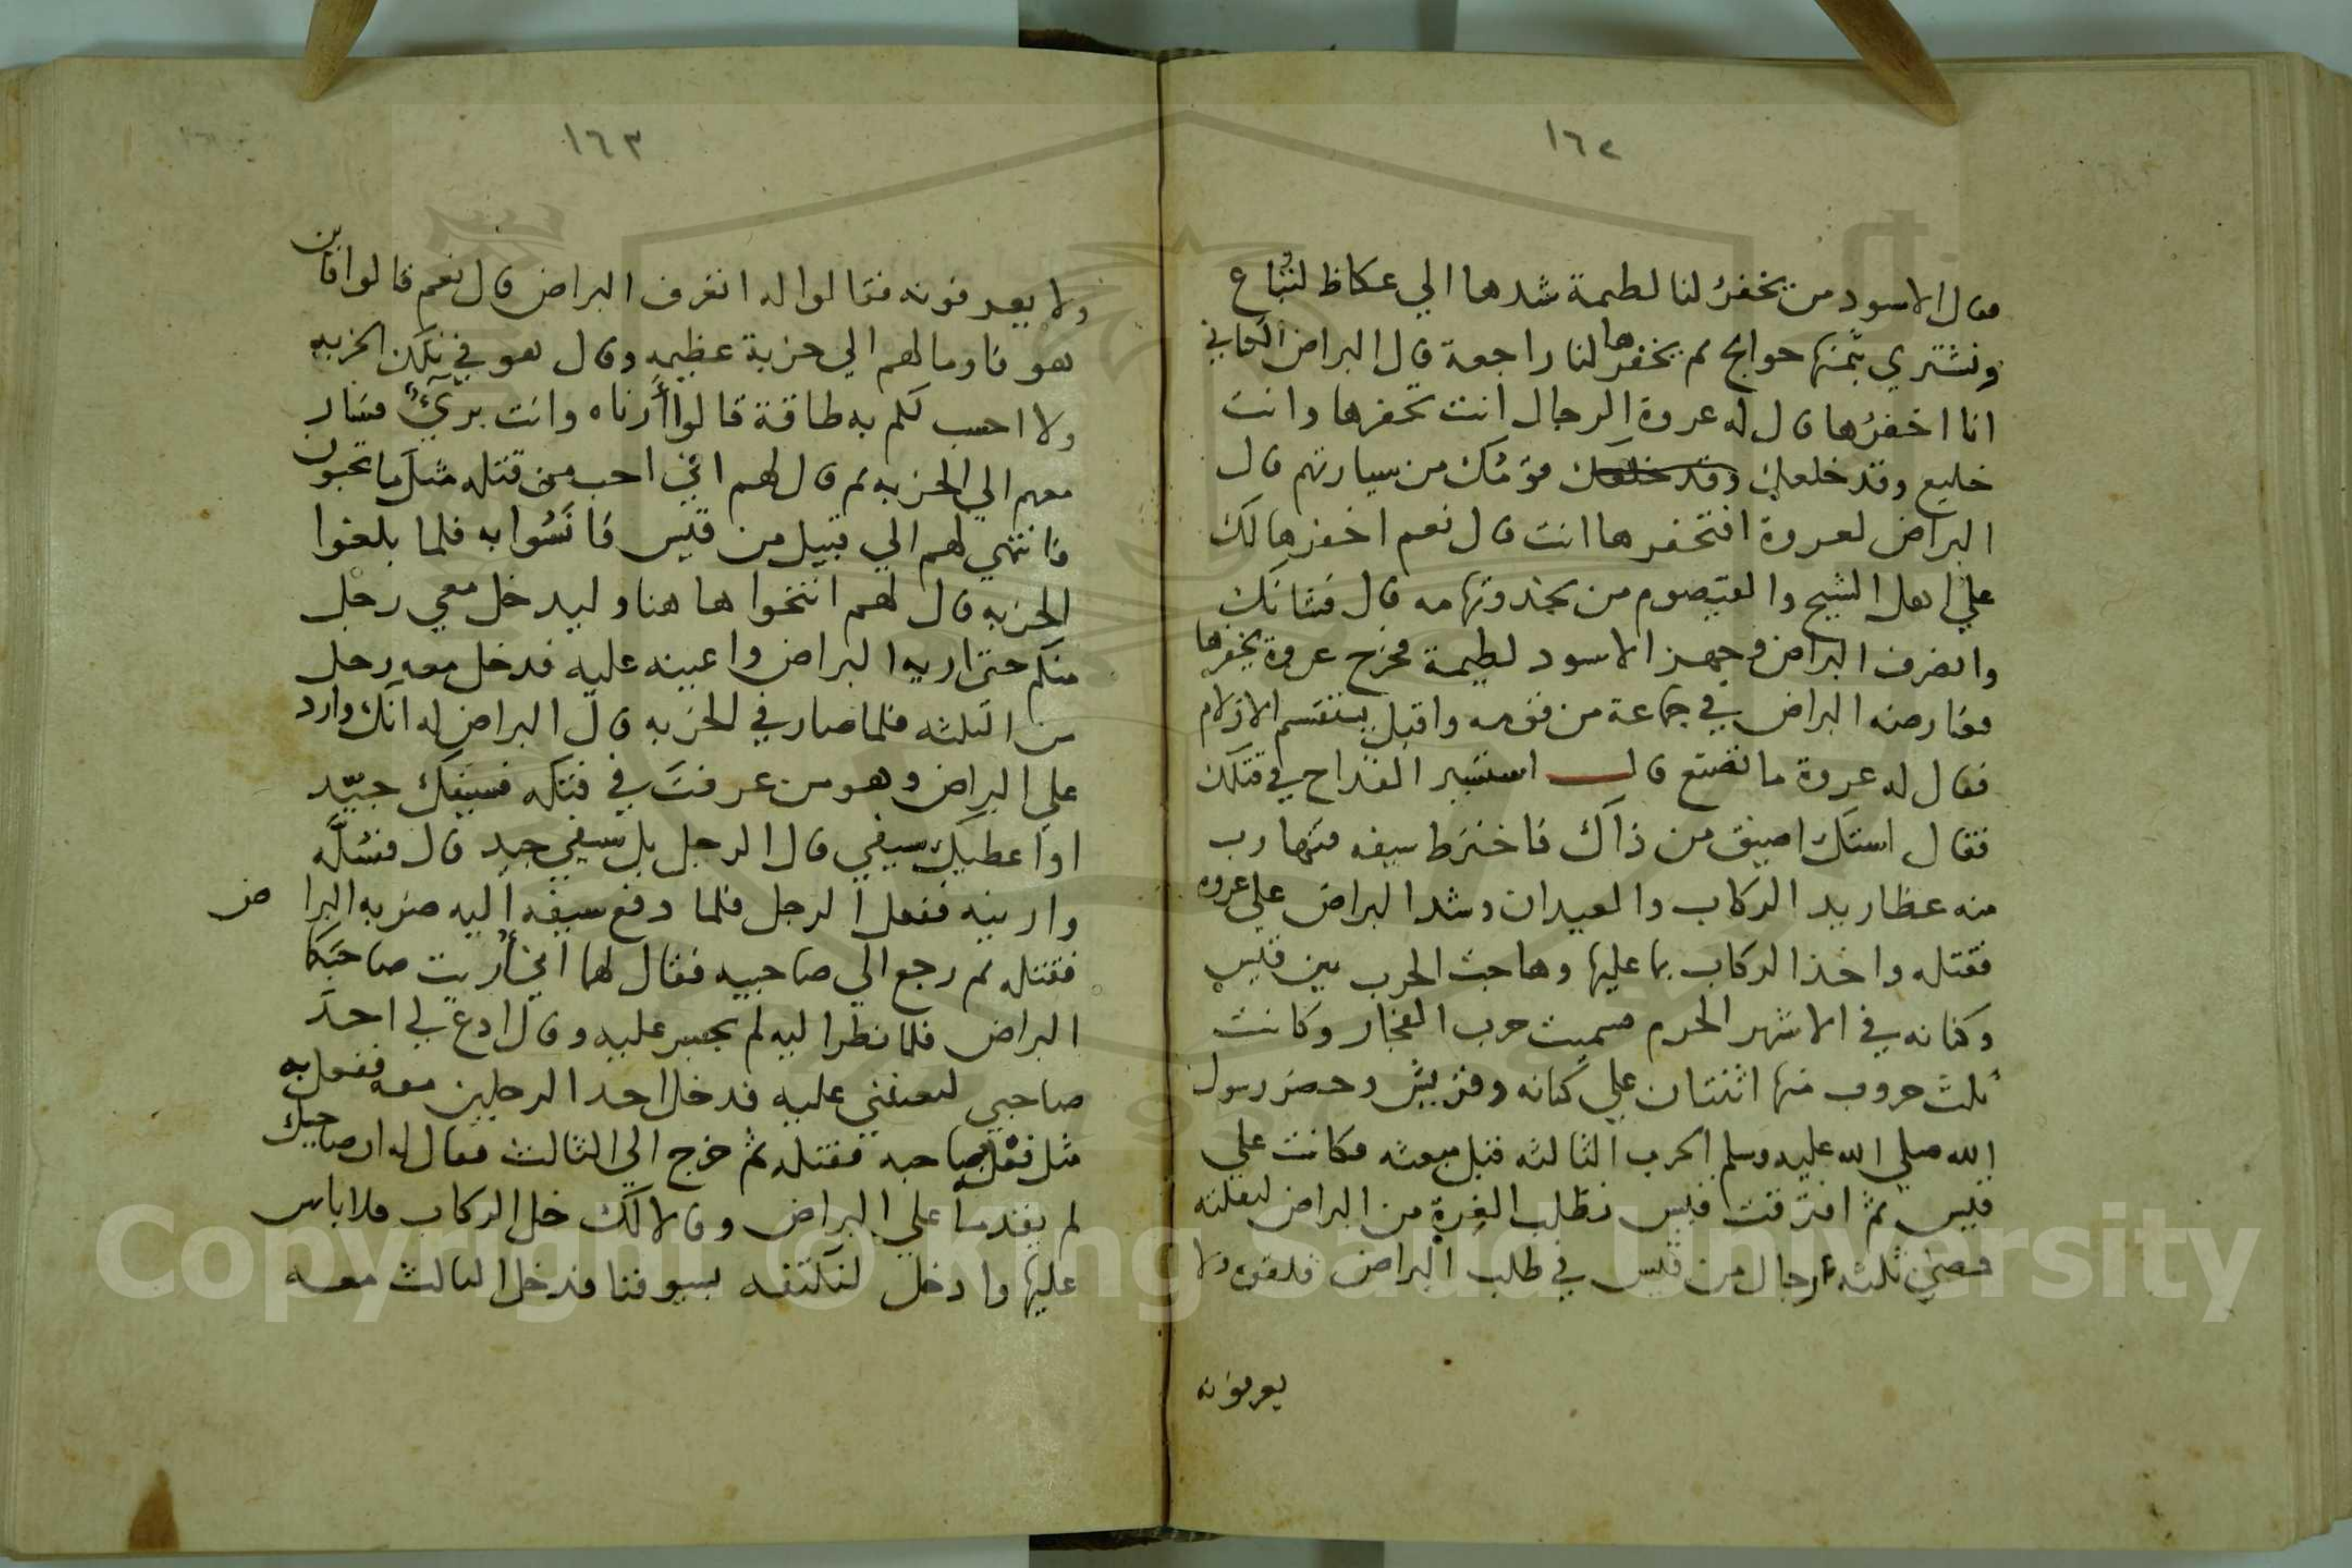 ١٦٢
فقال الاسود من يخفر لنا لطيمة شدها الي عكاظ لتُباع
ونشتري بثمنها حوايج ثم يخفرها لنا راجعة قال البراض الكناني
انا اخفرُها قال له عروة الرحال انت تخفرها وانت
خليع وقد خلعك قومُك من سيارتهم قال
البراض لعروة افتخفرها انت قال نعم اخفرها لك
علي اهل الشيح والقيصوم من نجد وتهامه قال فشانك
وانصرف البراض وجهز الاسود لطيمة فخرج عروة يخفرها
فعارضه البراض في جماعة من قومه واقبل يستقسم الازلام
فقال له عروة ما تصنع قال استشير القداح في قتلك
فقال استك اضيق من ذاك فاخترط سيفه فتهارب
منه عظاريد الركاب والعبدان وشد البراض علي عروه
فقتله واخذ الركاب بما عليها وهاجت الحرب بين قيس
وكنانه في الاشهر الحرم فسميت حرب الفجار وكانت
ثلث حروب منها اثنتان علي كنانه وقريش وحضر رسول
الله صلي الله عليه وسلم الحرب الثالثه قبل مبعثه فكانت علي
قيس ثم افترقت قيس تطلب الغرة من البراض لتقتله
فمضي ثلثه رجال من قيس في طلب البراض فلقوه ولا
يعرفونه
١٦٣
ولا يعرفونه فقالوا له اتعرف البراض قال نعم قالوا فاين
هو فاوما لهم الي خربة عظيمه وقال هو في تلك الخربه
ولا احسب لكم به طاقة قالوا أرناه وانت بريٌ فسار
معهم الي الخربه ثم قال لهم اني احب من قتله مثل ما تحبون
فانتهي لهم الي قبيل من قيس فانسُوا به فلما بلغوا
الخربه قال لهم انتحوا هاهنا وليدخل معي رجل
منكم حتي اريه البراض واعينه عليه فدخل معه رجل
من الثلثه فلما صار في الخربه قال البراض له انك وارد
علي البراض وهو من عرفتَ في فتكه فسيفك جيّد
او اعطيك سيفي قال الرجل بل سيفي جيد قال فسُلَّه
وارينيه ففعل الرجل فلما دفع سيفه اليه ضربه البراض
فقتله ثم رجع الي صاحبيه فقال لهما اني أريت صاحبكما
البراض فلما نظر اليه لم يجسر عليه وقال ادع لي احد
صاحبي ليعينني عليه فدخل احد الرجلين معه ففعل به
مثل فعله بصاحبه فقتله ثم خرج الي الثالث فقال له ان صاحبيك
لم يقدما علي البراض وقالا لك خل الركاب فلا باس
عليها وادخل لنكتنفه بسيوفنا فدخل الثالث معه
Copyright © King Saud University